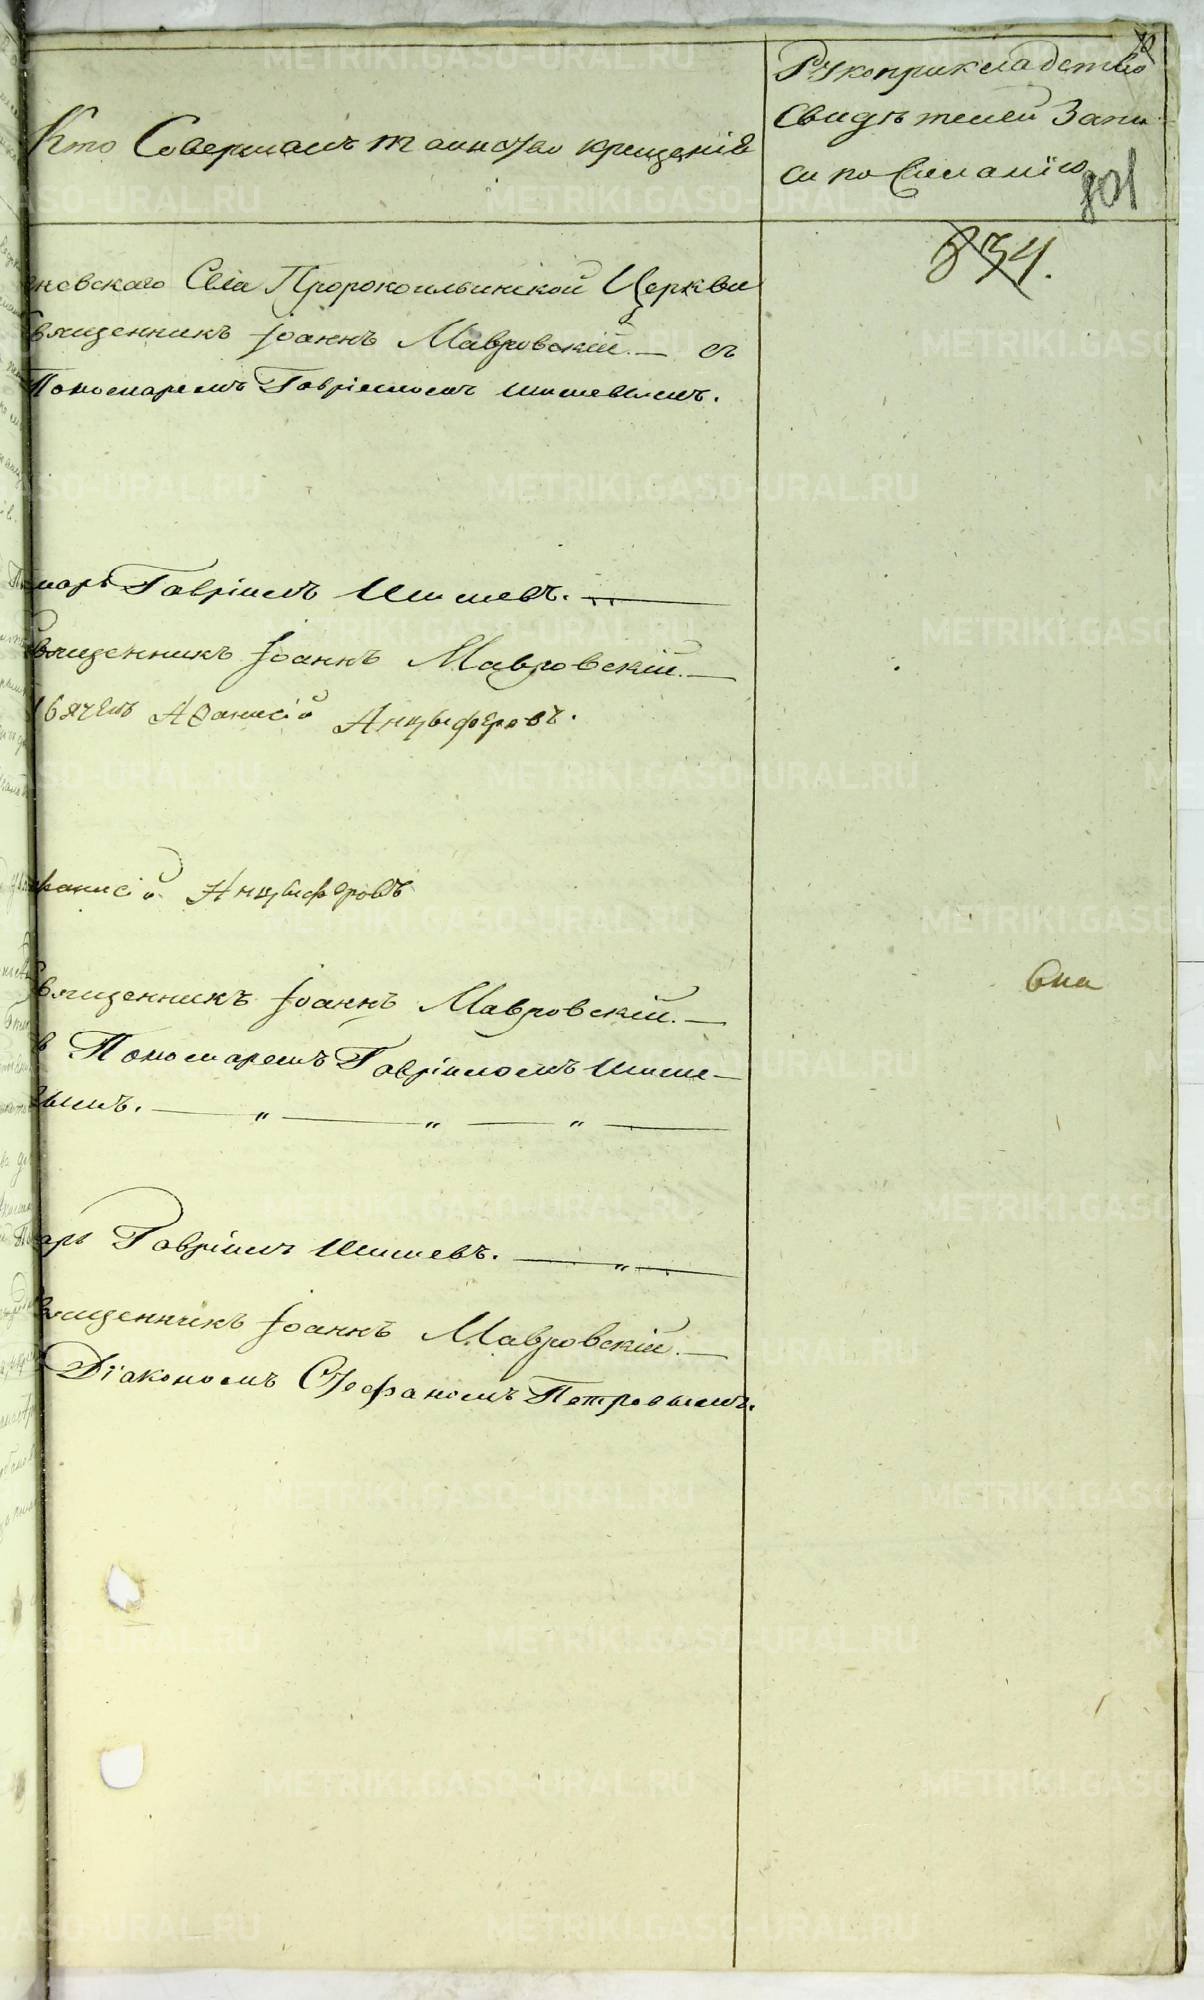 Кто Совершалъ таинство крещенія
Рукоприкладство
Свидѣтелей Запи
си по Желанію
801
834.
новскаго Села Пророкоильинской Церкви
Священникъ Іоаннъ Мавровскій. — съ
Пономаремъ Гавріиломъ Шишевымъ.
марь Гавріилъ Шишевъ. —
Священникъ Іоаннъ Мавровскій. —
Дьячекъ Афанасій Анцыферовъ.
фанасій Анцыферовъ
Священникъ Іоаннъ Мавровскій. —
Пономаремъ Гавріиломъ Шише—
вымъ. — „ — „ — „ —
арь Гавріилъ Шишевъ. — „ —
вященникъ Іоаннъ Мавровскій. —
Діакономъ Стефаномъ Петровымъ.
METRIKI.GASO-URAL.RU